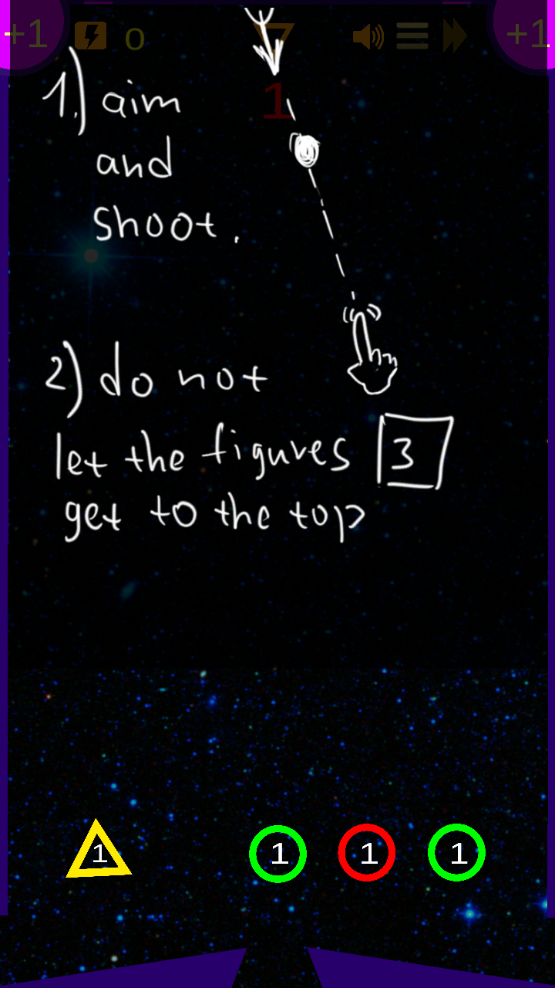 +1 0 +1
1
1.) aim
and
shoot.
2) do not
let the figures 3
get to the top
1 1 1 1